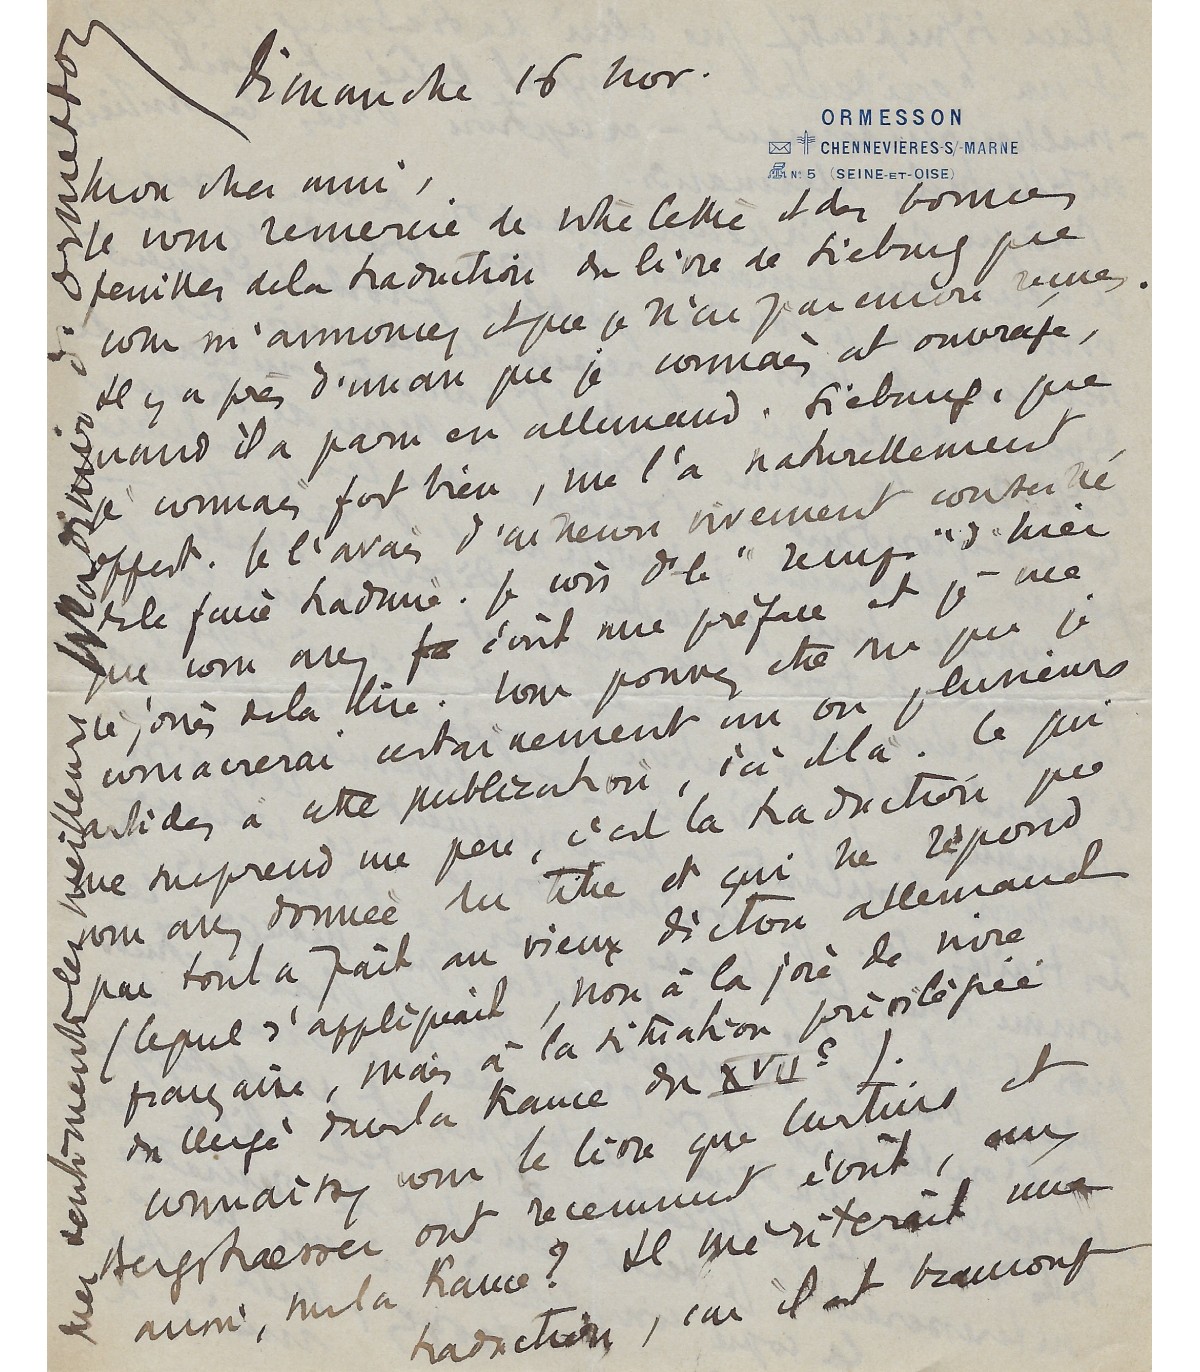 Dimanche 16 nov.
ORMESSON
CHENNEVIÈRES-S/-MARNE
N° 5 (SEINE-ET-OISE)
Mon cher ami,
Je vous remercie de votre lettre et des bonnes
feuilles de la traduction du livre de Sieburg que
vous m'annoncez et que je n'ai pas encore reçues.
Il y a près d'un an que je connais cet ouvrage,
quand il a paru en allemand. Sieburg, que
je connais fort bien, me l'a naturellement
offert. Je l'avais d'ailleurs vivement conseillé
de le faire traduire. Je vois ds le "Temps" d'hier
que vous avez écrit une préface et je me
réjouis de la lire. Vous pouvez être sûr que je
consacrerai certainement un ou plusieurs
articles à cette publication, ici et là. Ce qui
me surprend un peu, c'est la traduction que
vous avez donnée du titre et qui ne répond
pas tout à fait au vieux dicton allemand
(lequel s'appliquait, non à la joie de vivre
française, mais à la situation privilégiée
du clergé dans la France du XVIIe).
Connaissez vous le livre que Curtius et
Bergstraesser ont récemment écrit, eux
aussi, sur la France? Il mériterait une
traduction, car il est vraiment
mes sentiments les meilleurs Wladimir d'Ormesson